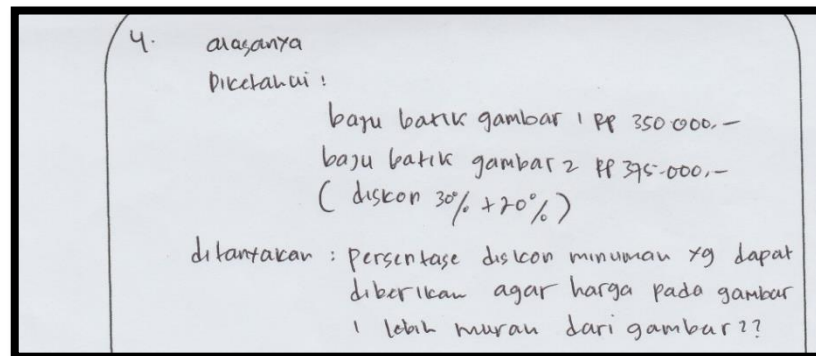 4. alasanya
Diketahui :
baju batik gambar 1 Rp 350 000.-
baju batik gambar 2 Rp 375.000,-
( diskon 30% + 20% )
ditanyakan : persentase diskon minuman yg dapat
diberikan agar harga pada gambar
1 lebih murah dari gambar 2?